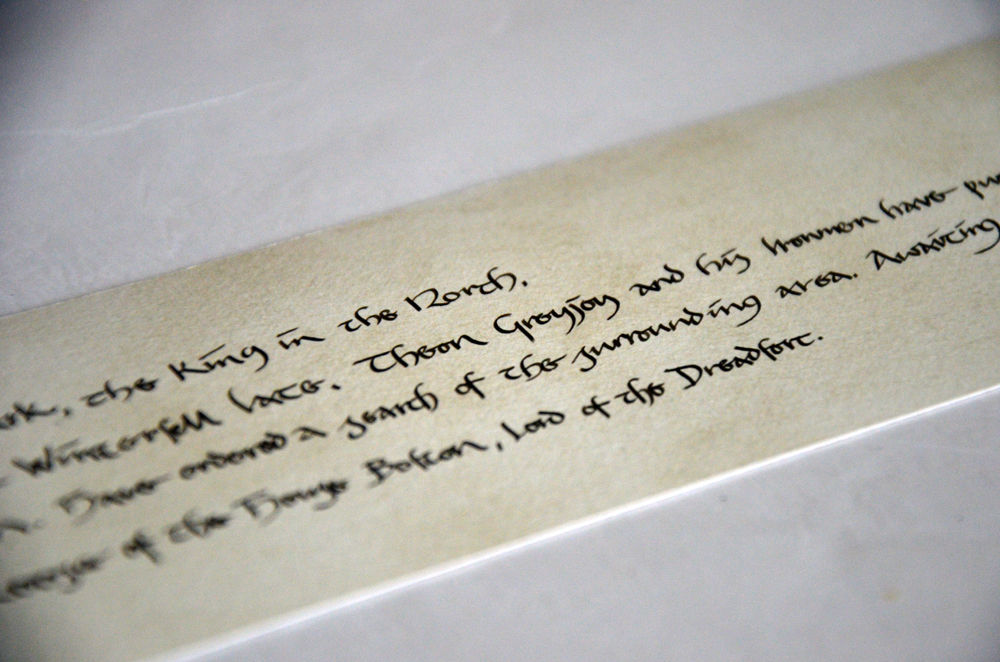 the King in the North.
Winterfell late. Theon Greyjoy and his Ironmen have
Have ordered a search of the surrounding area. Awaiting
of the House Bolton, Lord of the Dreadfort.